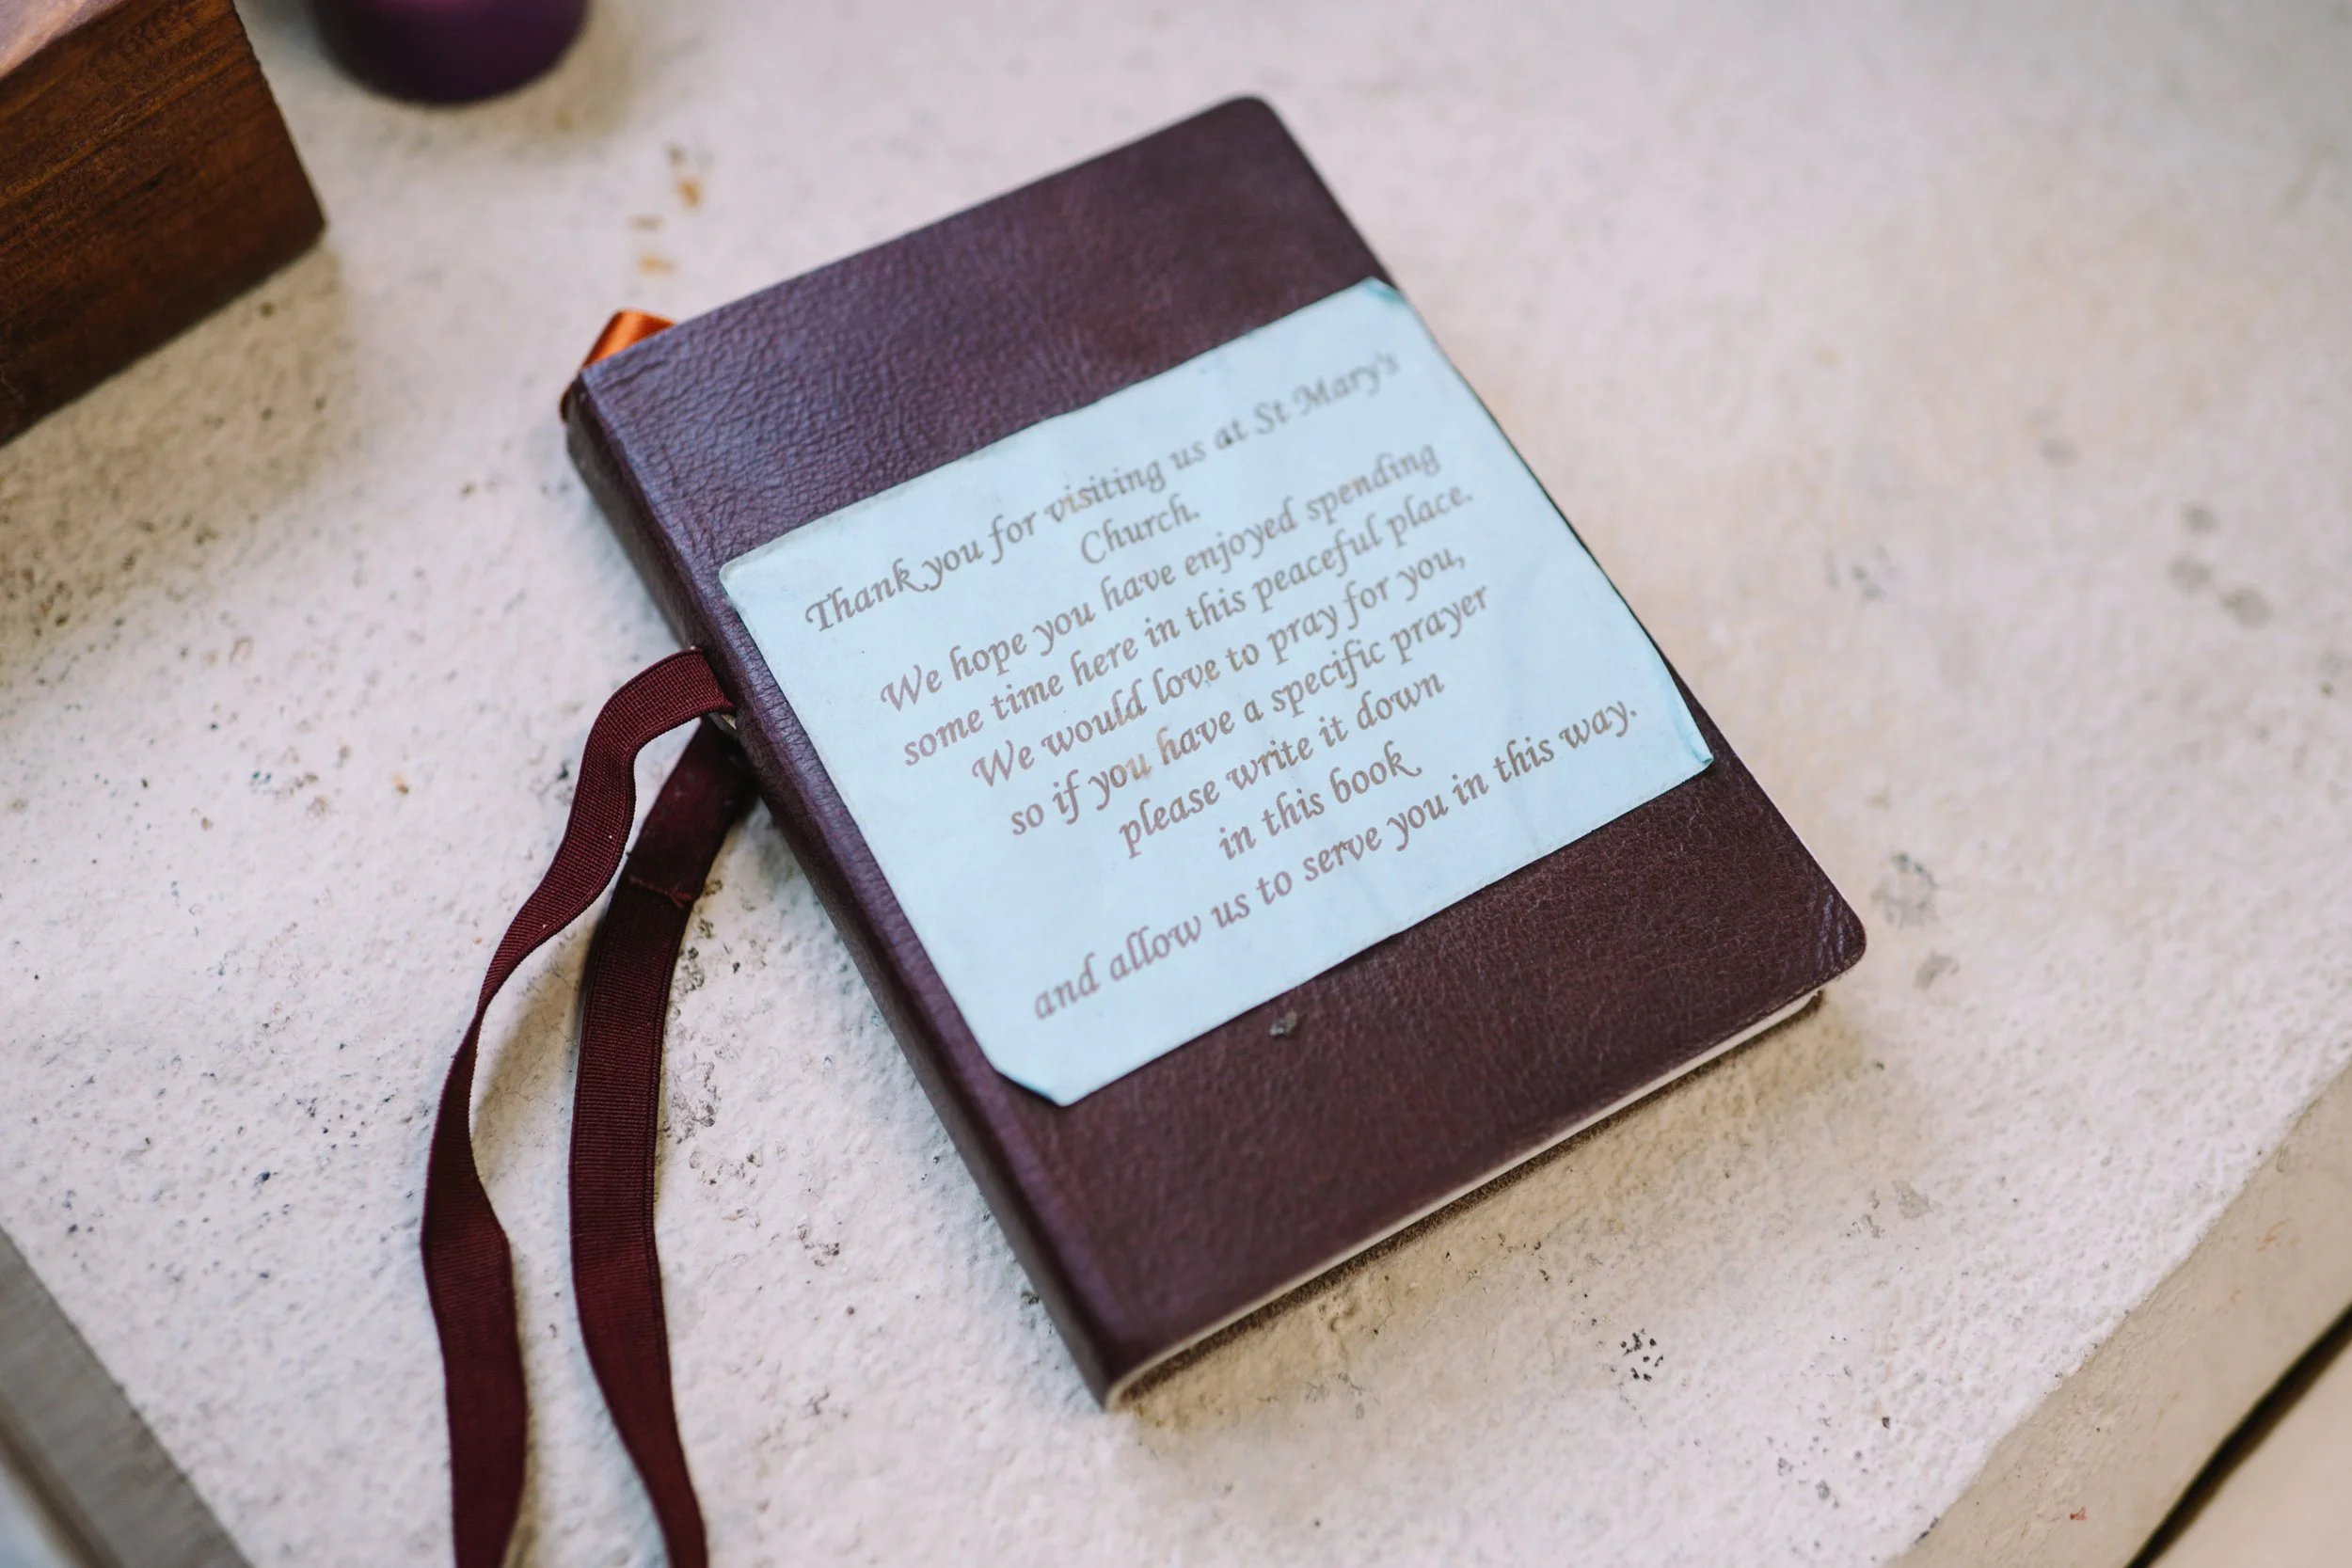 Thank you for visiting us at St Mary's
Church.
We hope you have enjoyed spending
some time here in this peaceful place.
We would love to pray for you,
so if you have a specific prayer
please write it down
in this book
and allow us to serve you in this way.